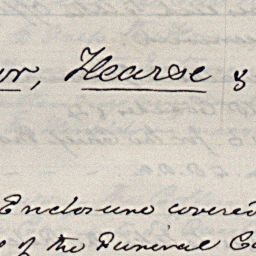 Hearse &
Enclosure covered
of the Funeral